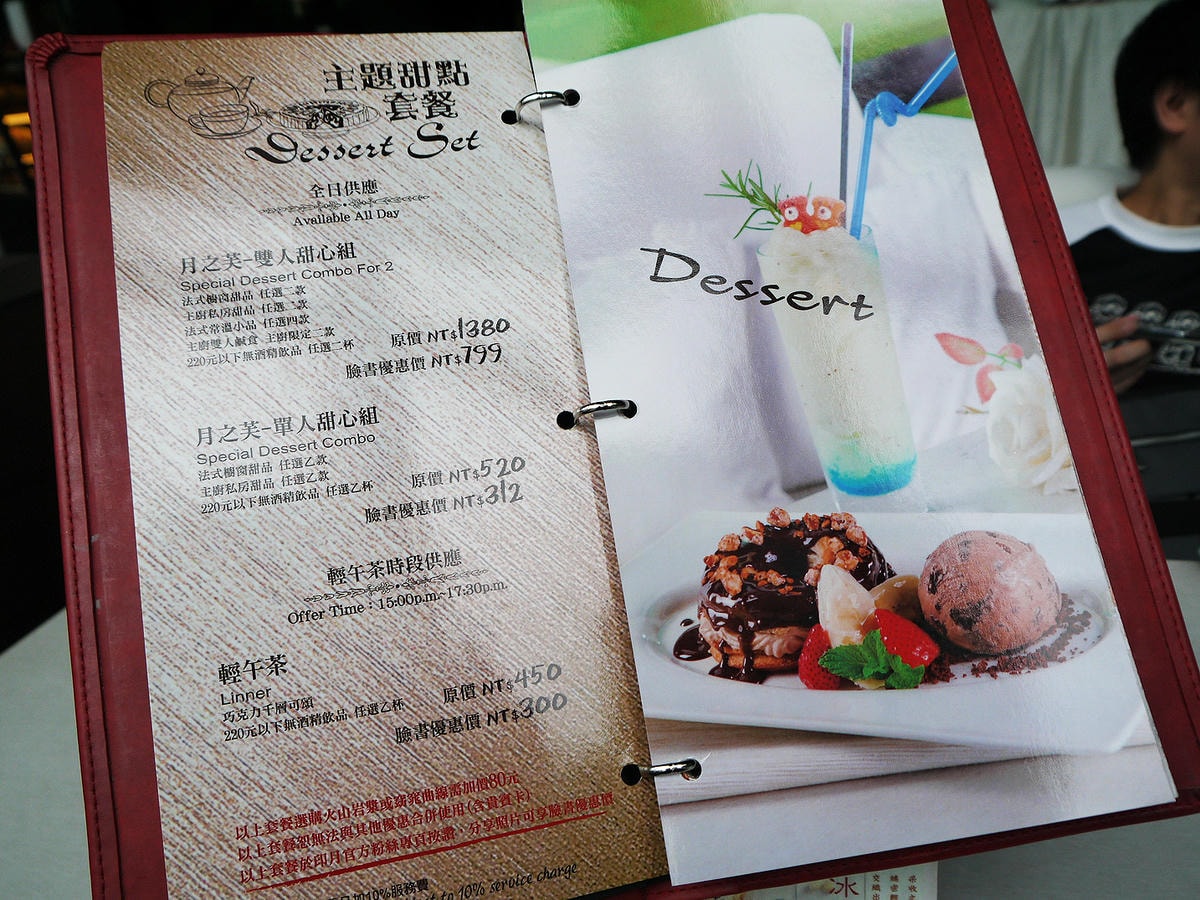 主題甜點
套餐
Dessert Set
全日供應
Available All Day
月之芙-雙人甜心組
Special Dessert Combo For 2
法式櫥窗甜品 任選二款
主廚私房甜品 任選二款
法式常溫小品 任選四款
主廚雙人鹹食 主廚限定二款
220元以下無酒精飲品 任選二杯
原價 NT$1380
臉書優惠價 NT$799
月之芙-單人甜心組
Special Dessert Combo
法式櫥窗甜品 任選乙款
主廚私房甜品 任選乙款
220元以下無酒精飲品 任選乙杯
原價 NT$520
臉書優惠價 NT$312
輕午茶時段供應
Offer Time : 15:00p.m.~17:30p.m.
輕午茶
Linner
巧克力千層可頌
220元以下無酒精飲品 任選乙杯
原價 NT$450
臉書優惠價 NT$300
以上套餐選購火山岩漿或窈窕曲線需加價80元
以上套餐恕無法與其他優惠合併使用(含貴賓卡)
以上套餐於印月官方粉絲專頁按讚、分享照片可享臉書優惠價
加10%服務費
to 10% service charge
Dessert
冰